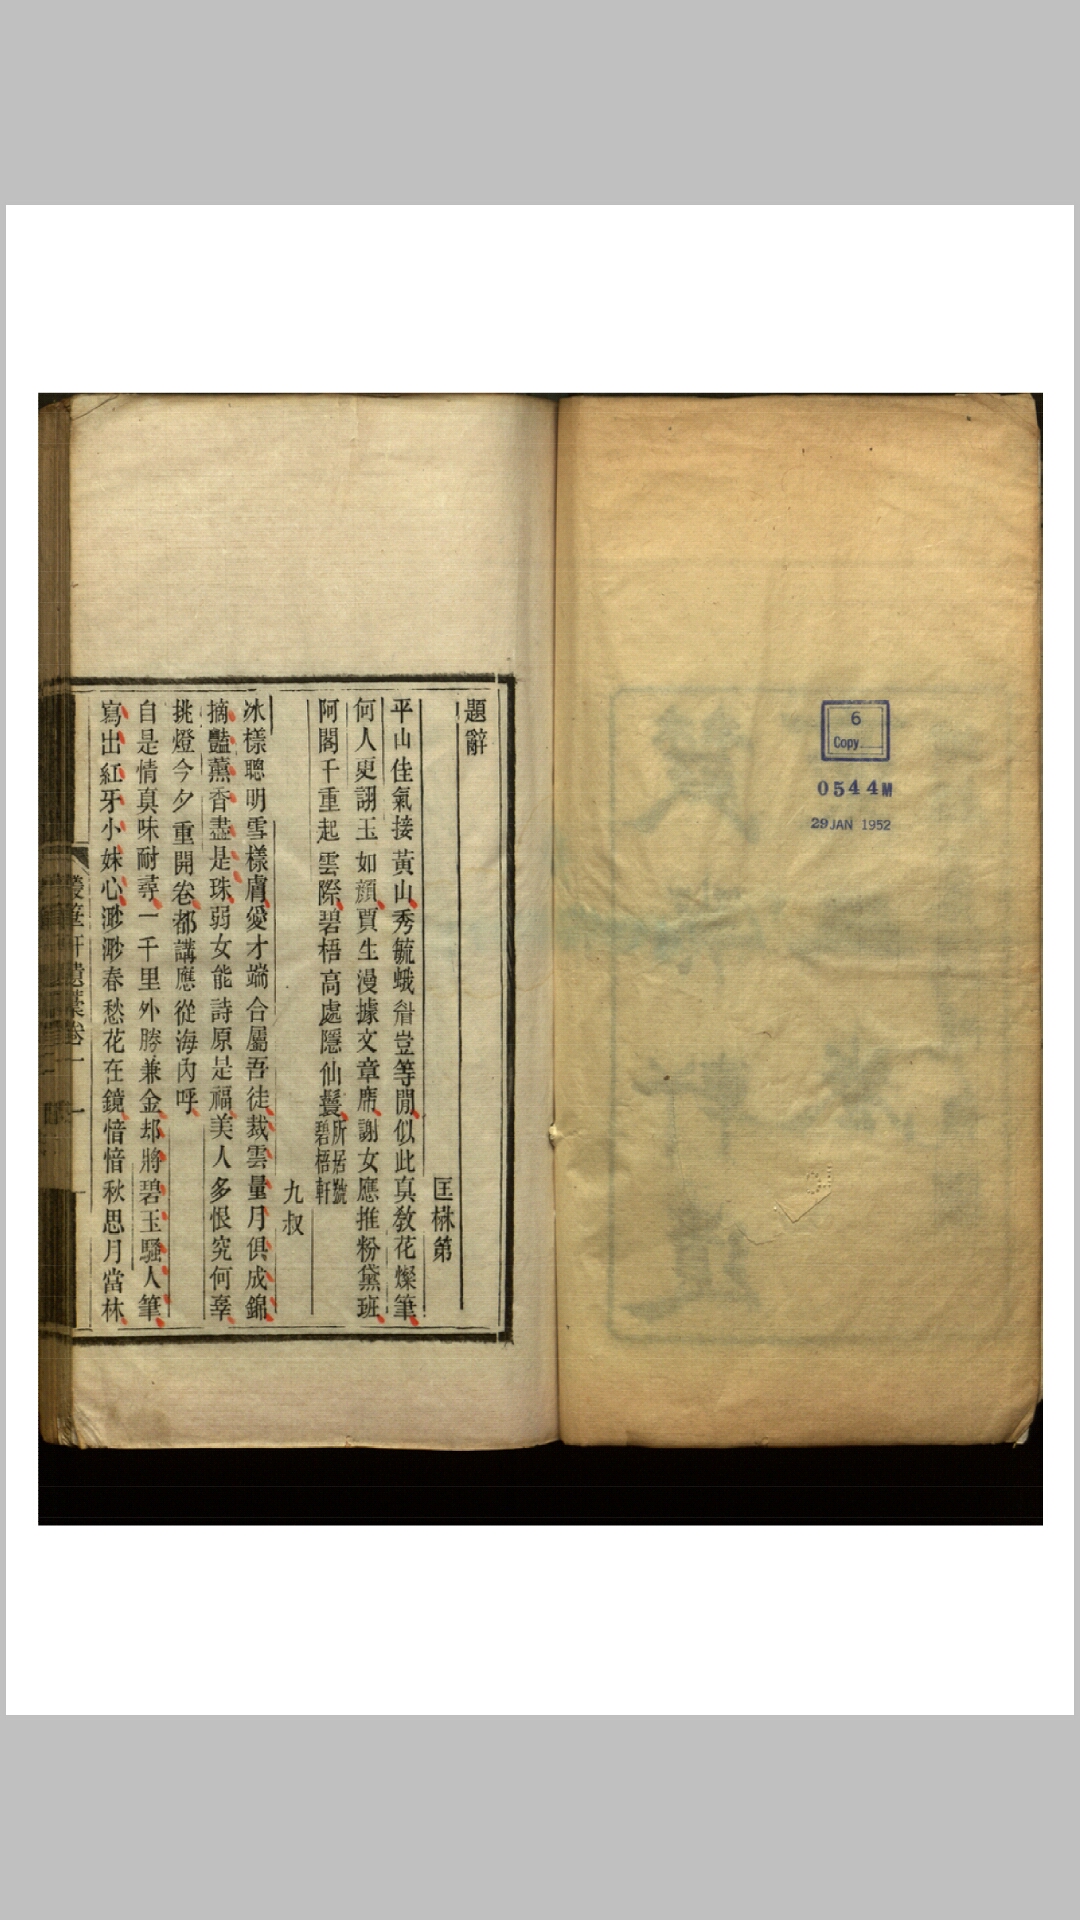 6
Copy
0544M
29 JAN 1952
題辭
匡楙第
平山佳氣接黃山秀毓蛾眉豈等閒似此真教花燦筆
何人更詡玉如顔賈生漫據文章席謝女應推粉黛班
阿閣千重起雲際碧梧高處隱仙鬟所居號碧梧軒
九叔
冰樣聰明雪樣膚愛才端合屬吾徒裁雲量月俱成錦
摘豔薰香盡是珠弱女能詩原是福美人多恨究何辜
挑燈今夕重開卷都講應從海內呼
自是情真味耐尋一千里外勝兼金却將碧玉騷人筆
寫出紅牙小妹心渺渺春愁花在鏡愔愔秋思月當林
軒遺稾卷一